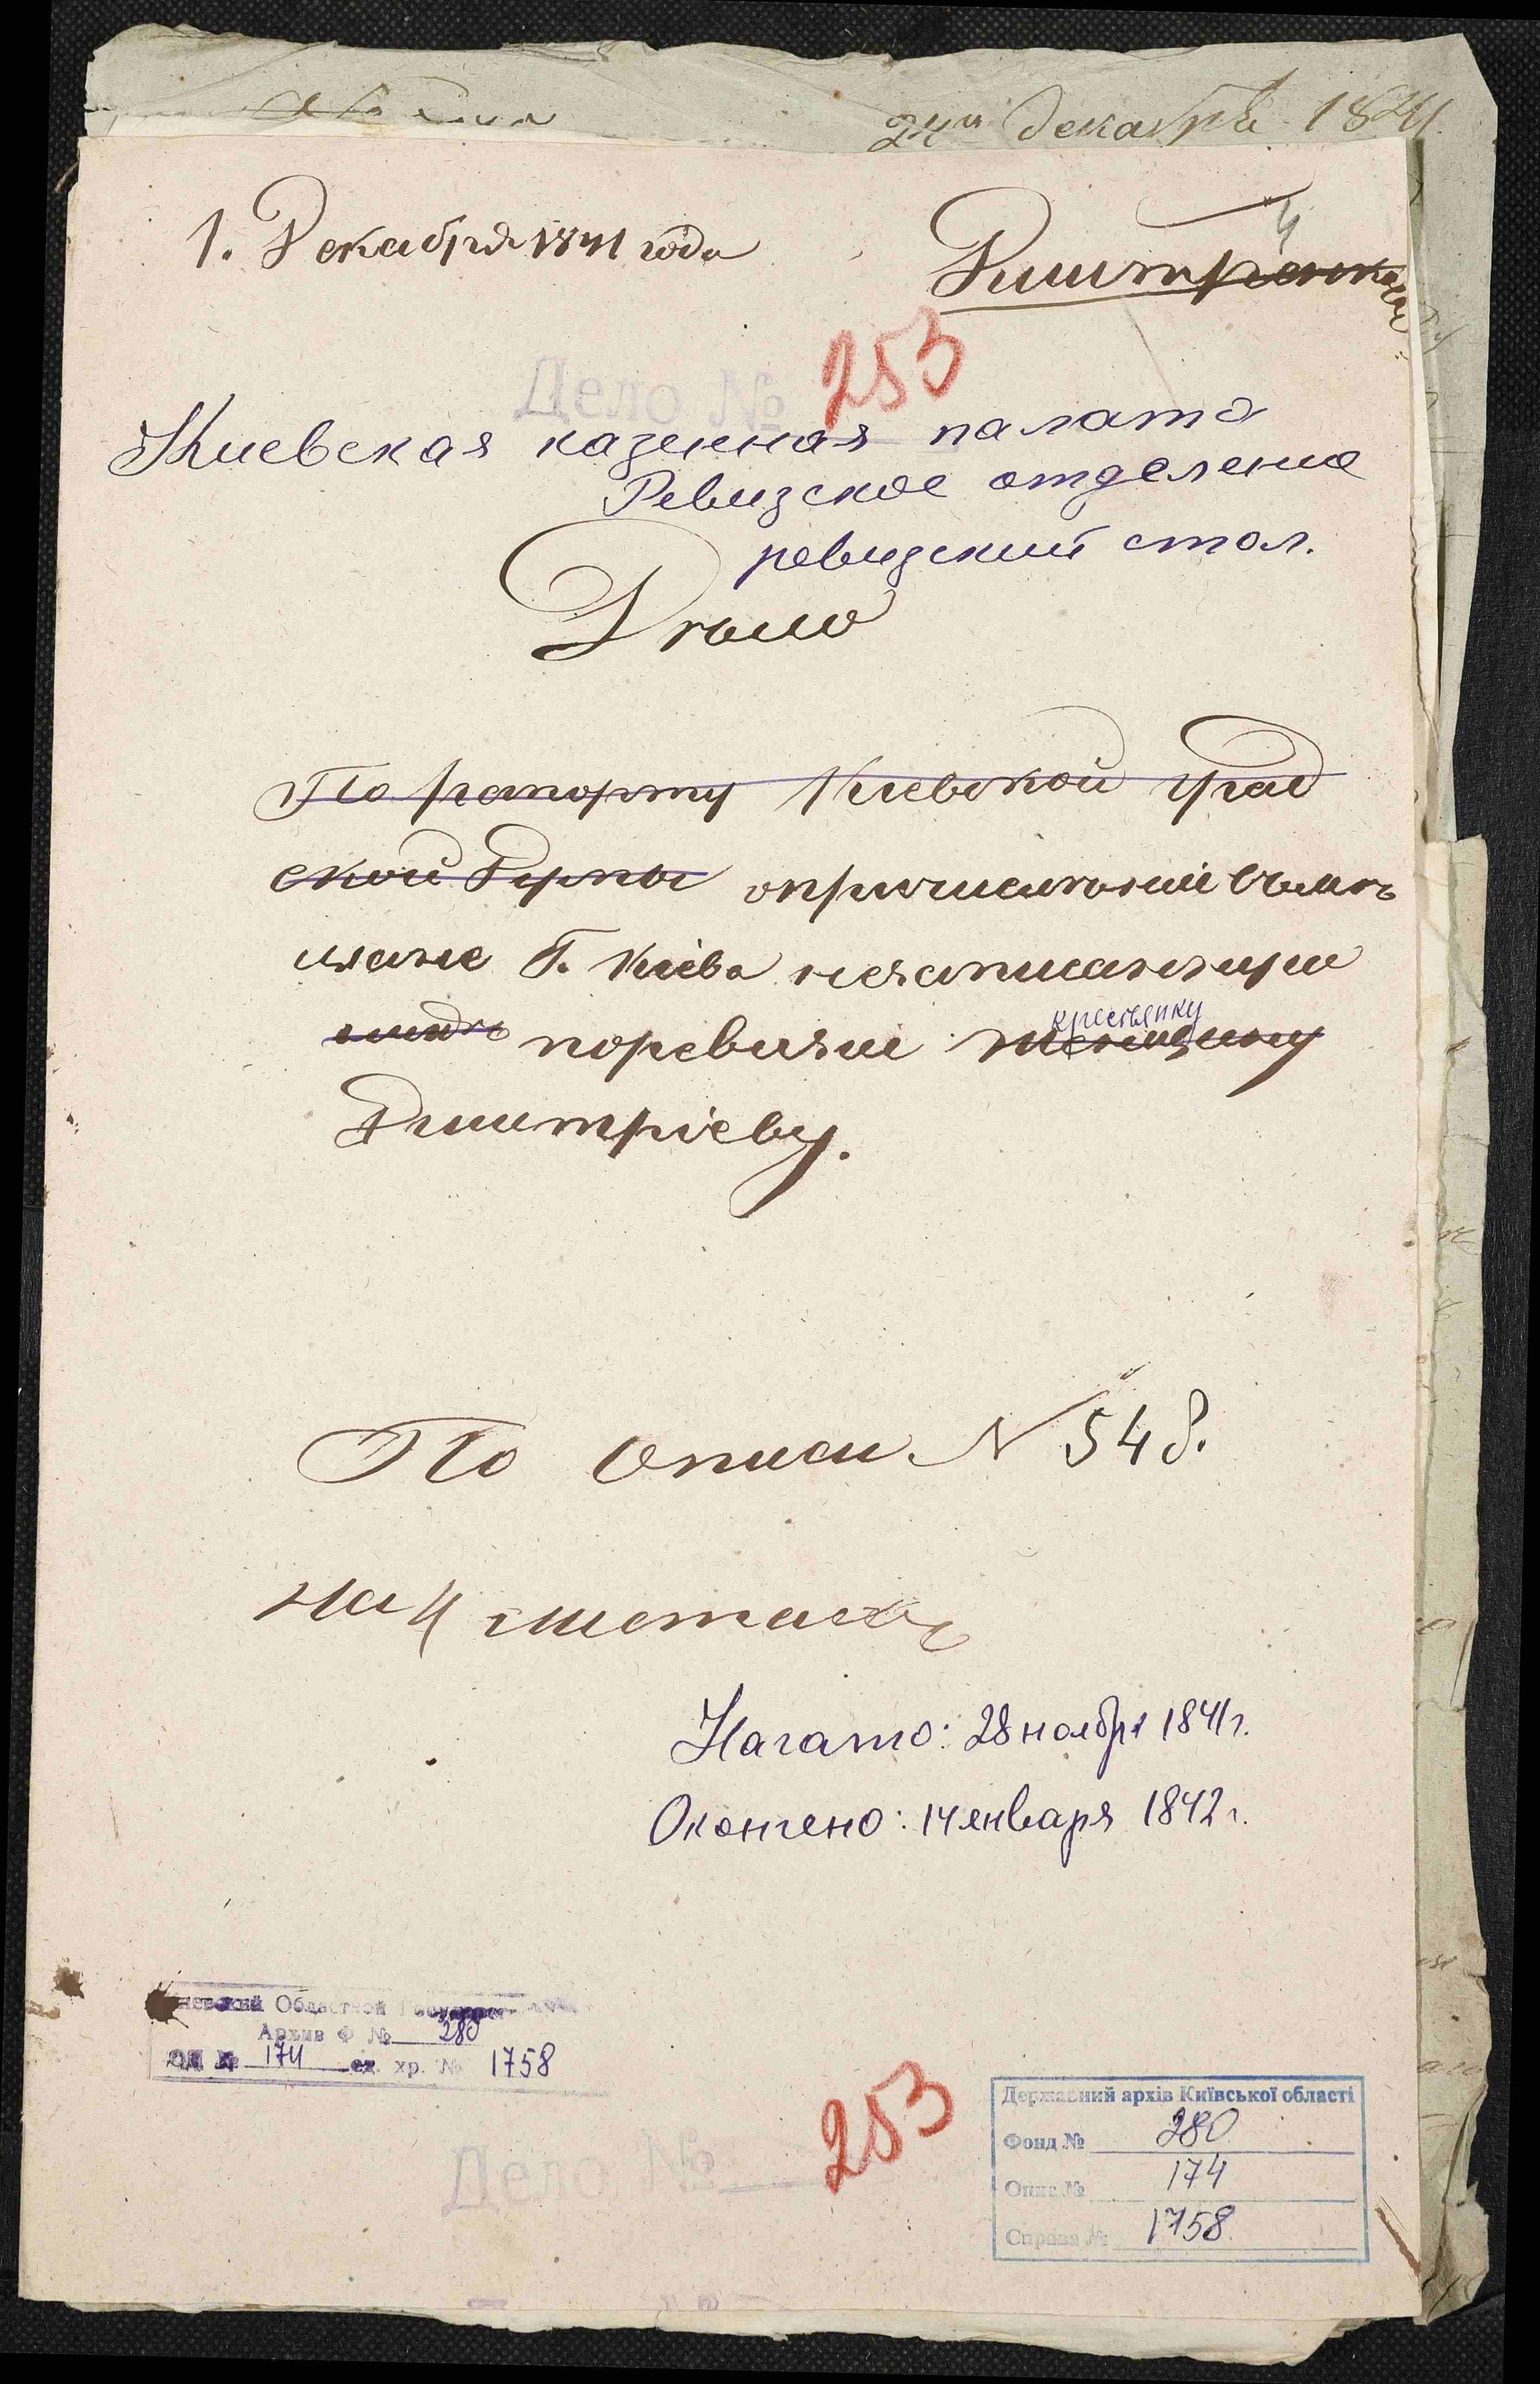 24го декабря 1841
1. Декабря 1841 года
4
Дмитренкова
Дело № 253
Киевская казенная палата
Ревизское отделение
ревизский стол.
Дѣло
По рапорту Кіевской град
ской Думы опричисленіи вмѣ
щане Г. Кіева незаписанную
поревизіи женщину
крестьянку
Дмитріеву.
По Описи N 548.
на 4 листахъ
Начато: 28 ноября 1841 г.
Окончено: 14 января 1842 г.
Киевский Областной Государственный
Архив Ф № 280
ОП № 174 ед. хр. № 1758
Дело № 253
Державний архів Київської області
Фонд № 280
Опис № 174
Справа № 1758